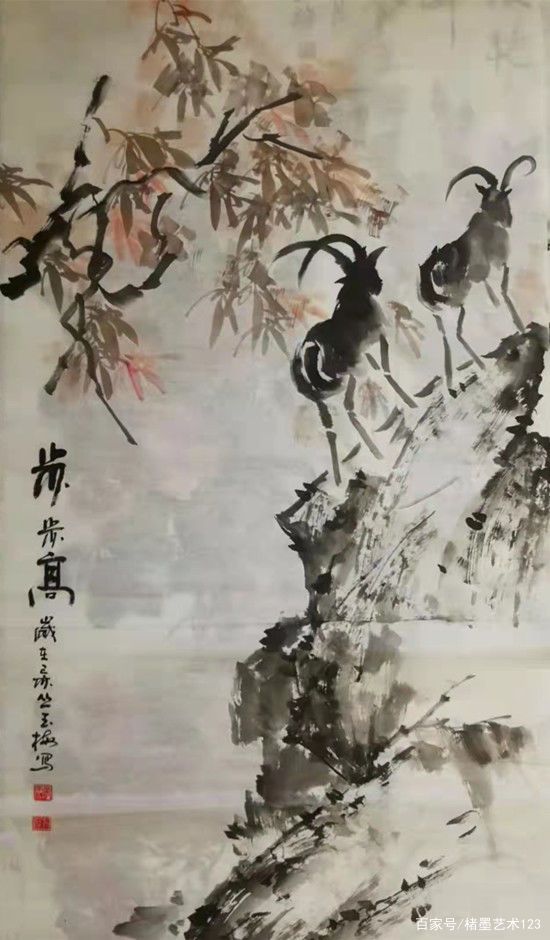 步步高
歲在 玉梅写
百家号/楮墨艺术123